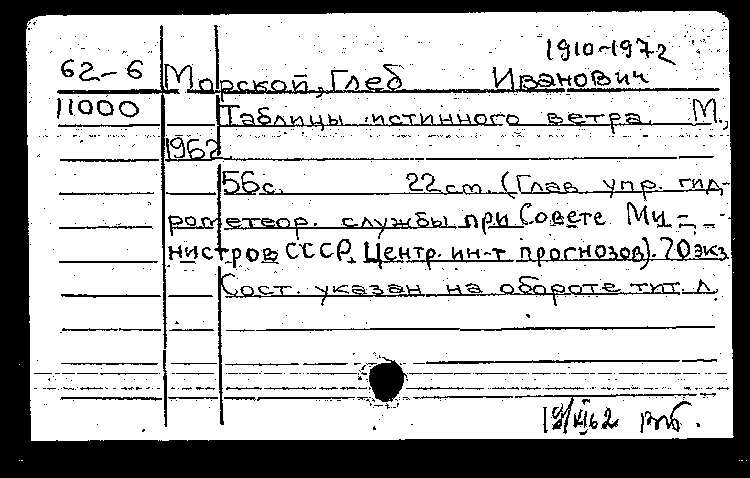 1910-1972
62-6 Морской, Глеб Иванович
11000 Таблицы истинного ветра. М.,
1962.
56 с. 22 cm. (Глав. упр. гид-
рометеор. службы при Совете Ми-
нистров СССР. Центр. ин-т прогнозов). 70 экз
Сост. указан на обороте тит. л.